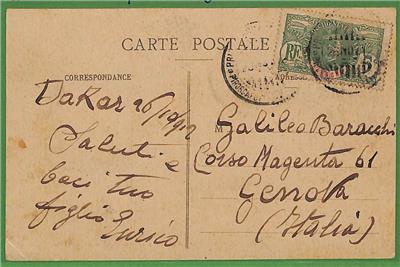 CARTE POSTALE
CORRESPONDANCE
Dakar 26/10/912
Saluti e
baci tuo
figlio Enrico
RF
5
M
Galileo Baracchi
Corso Magenta 61
Genova
(Italia)